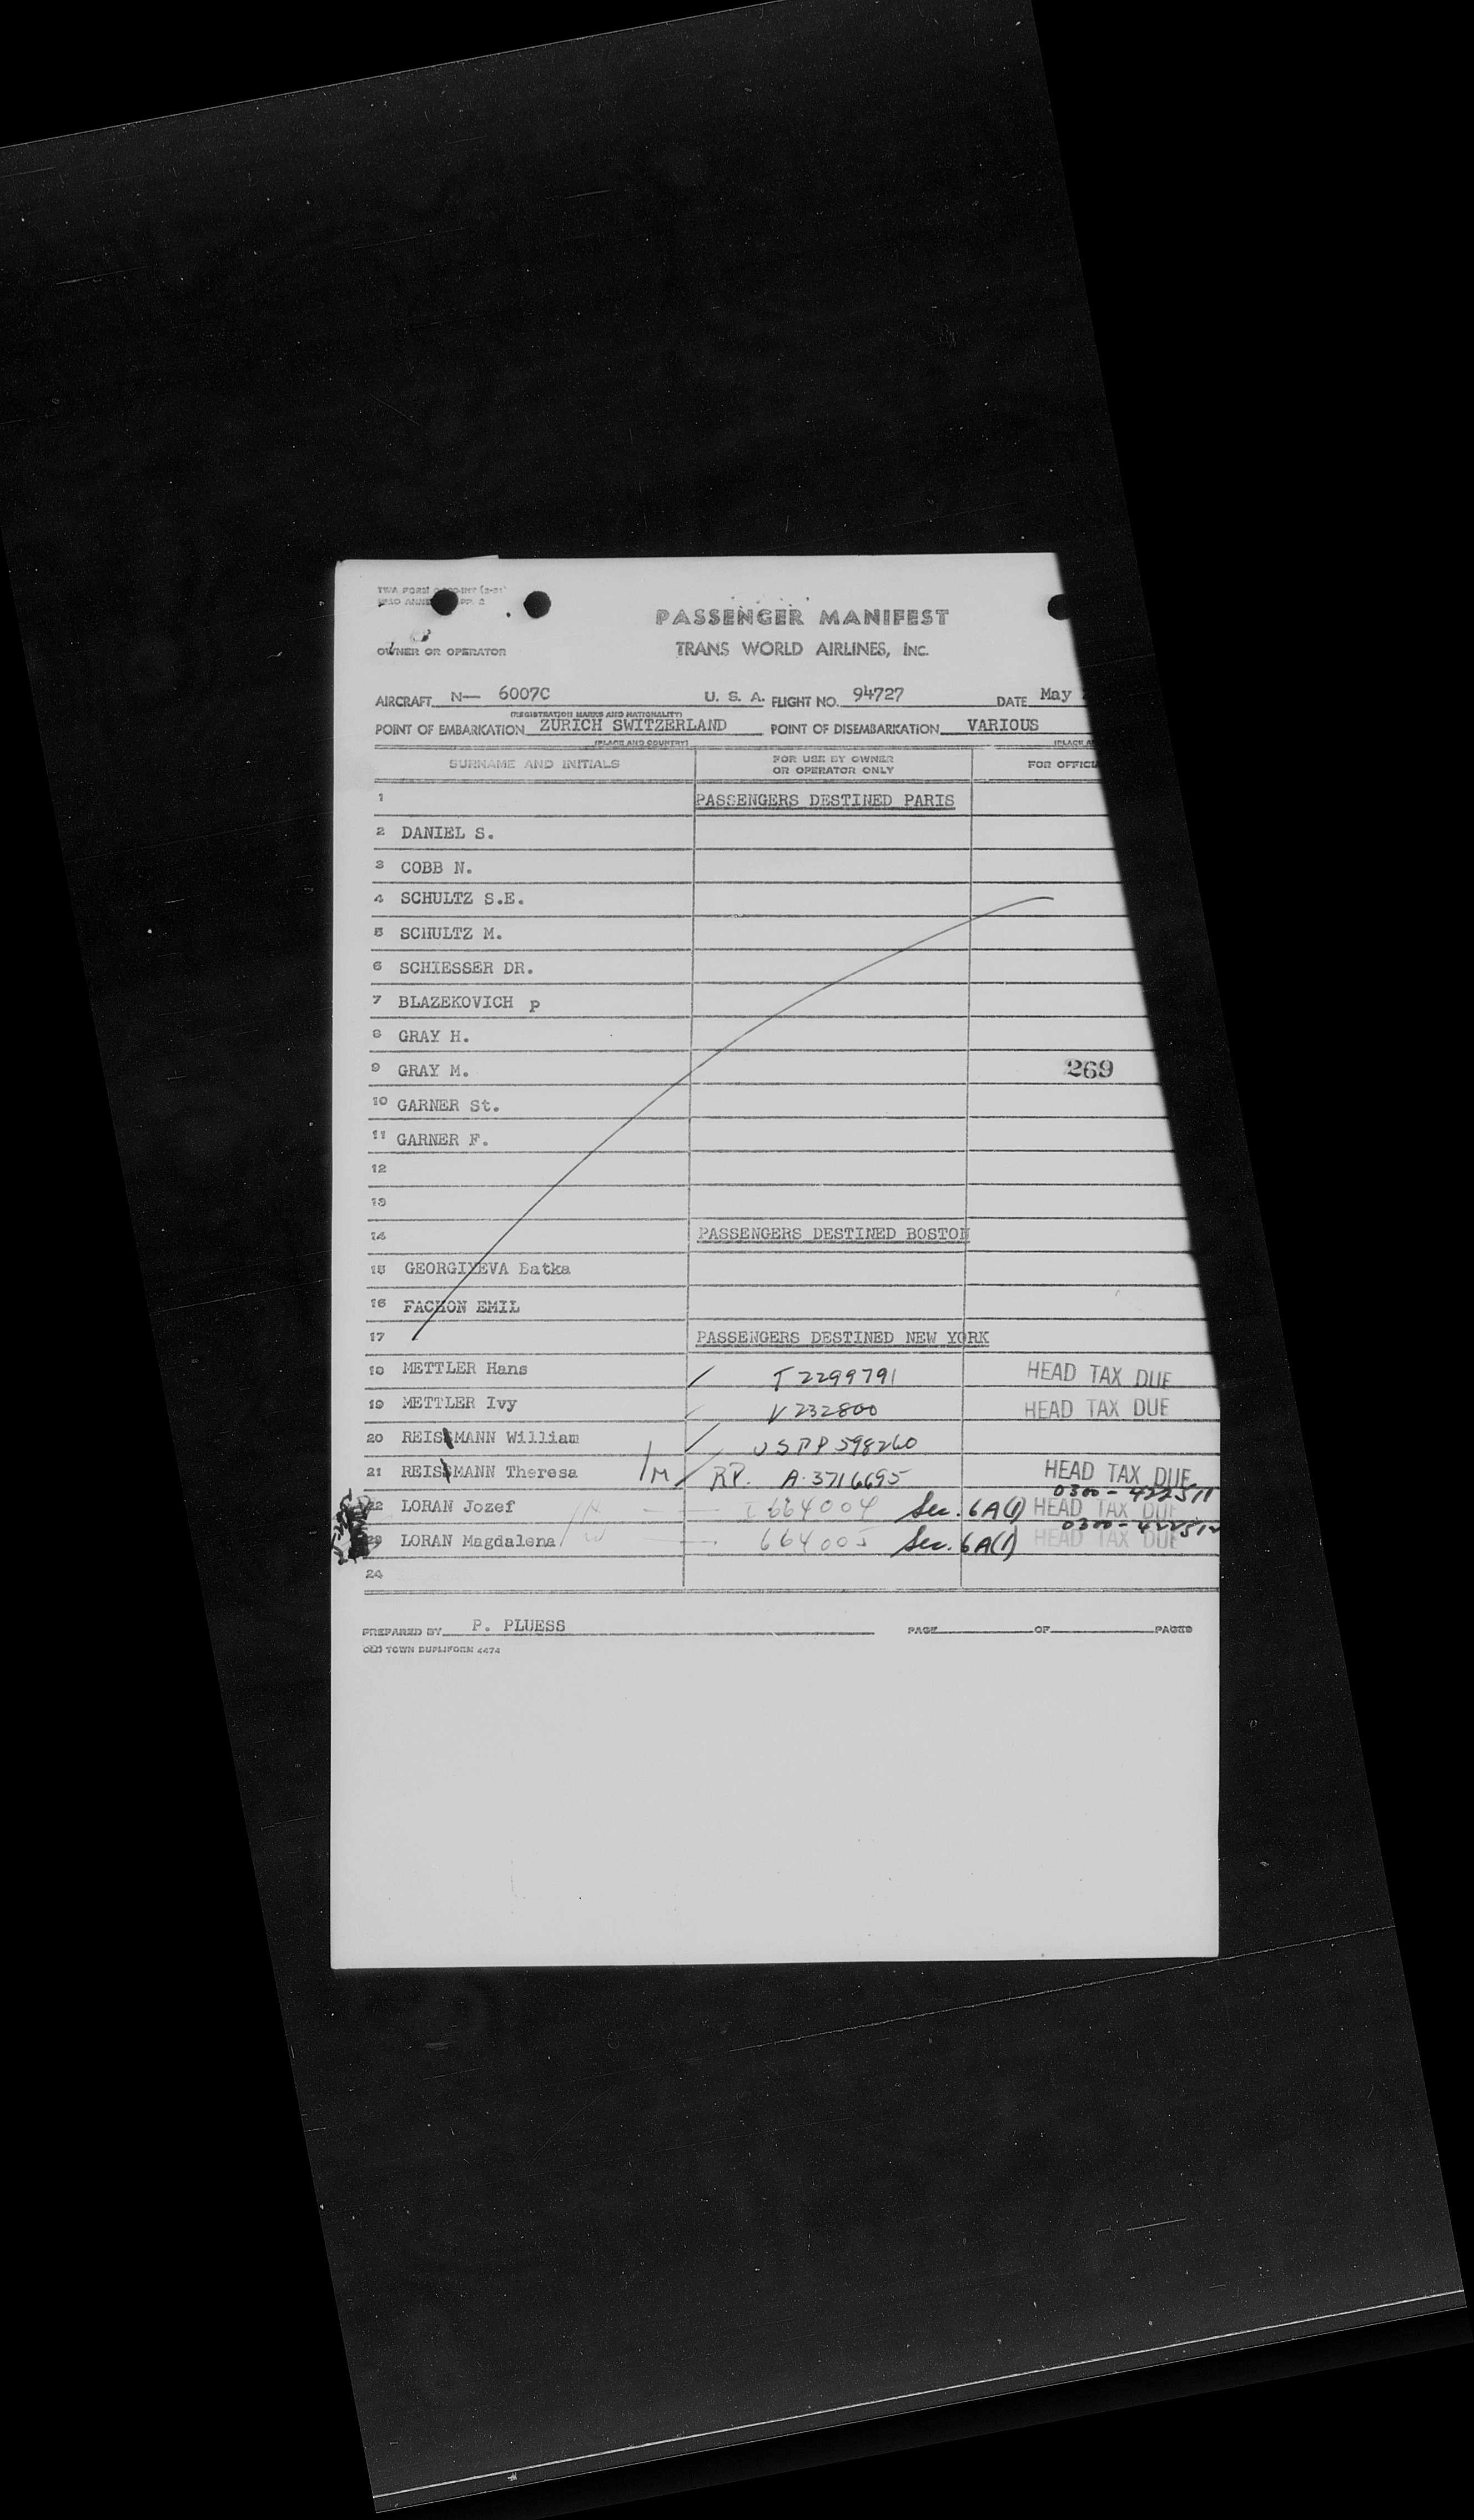 TWA FORM
PASSENGER MANIFEST
OWNER OR OPERATOR TRANS WORLD AIRLINES, INC.
AIRCRAFT N— 6007C U. S. A. FLIGHT NO. 94727 DATE May
(REGISTRATION MARKS AND NATIONALITY)
POINT OF EMBARKATION ZURICH SWITZERLAND POINT OF DISEMBARKATION VARIOUS
(PLACE AND COUNTRY)
SURNAME AND INITIALS FOR USE BY OWNER OR OPERATOR ONLY FOR OFFICIA
1 PASSENGERS DESTINED PARIS
2 DANIEL S.
3 COBB N.
4 SCHULTZ S.E.
5 SCHULTZ M.
6 SCHIESSER DR.
7 BLAZEKOVICH p
8 GRAY H.
9 GRAY M. 269
10 GARNER St.
11 GARNER F.
12
13
14 PASSENGERS DESTINED BOSTON
15 GEORGIYEVA Datka
16 FACHON EMIL
17 PASSENGERS DESTINED NEW YORK
18 METTLER Hans T 2299791 HEAD TAX DUE
19 METTLER Ivy V 232800 HEAD TAX DUE
20 REISSMANN William USPP 598260
21 REISSMANN Theresa /M RP. A-3716695 HEAD TAX DUE
0300-422511
22 LORAN Jozef I 664004 Sec. 6A(1) HEAD TAX DUE
0300-422512
23 LORAN Magdalena 664005 Sec. 6A(1) HEAD TAX DUE
24
PREPARED BY P. PLUESS PAGE OF PAGES
OLD TOWN DUPLIFORM 4474